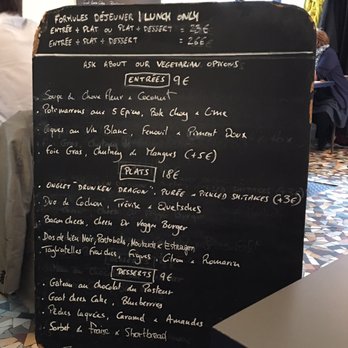 FORMULES DÉJEUNER / LUNCH ONLY
ENTRÉE + PLAT OU PLAT + DESSERT = 23€
ENTRÉE + PLAT + DESSERT = 26€
ASK ABOUT OUR VEGETARIAN OPTIONS
ENTRÉES 9€
• Soupe de Choux Fleur & Coconut
• Potimarrons aux 5 Epices, Pak Choy & Lime
• Coques au Vin Blanc, Fenouil & Piment Doux
• Foie Gras, Chutney de Mangues (+5€)
PLATS 18€
• ONGLET "DRUNKEN DRAGON", PURÉE & PICKLED SHITAKES (+3€)
• Duo de Cochon, Trévise & Quetsches
• Bacon Cheese, Cheese Or Veggie Burger
• Dos de lieu Noir, Moutarde & Estragon
• Tagliatelles Fraîches, Figues, Citron & Romarin
DESSERTS 9€
• Gâteau au Chocolat du Pasteur
• Goat cheese Cake, Blueberries
• Pêches laquées, Caramel & Amandes
• Sorbet de Fraise & Shortbread